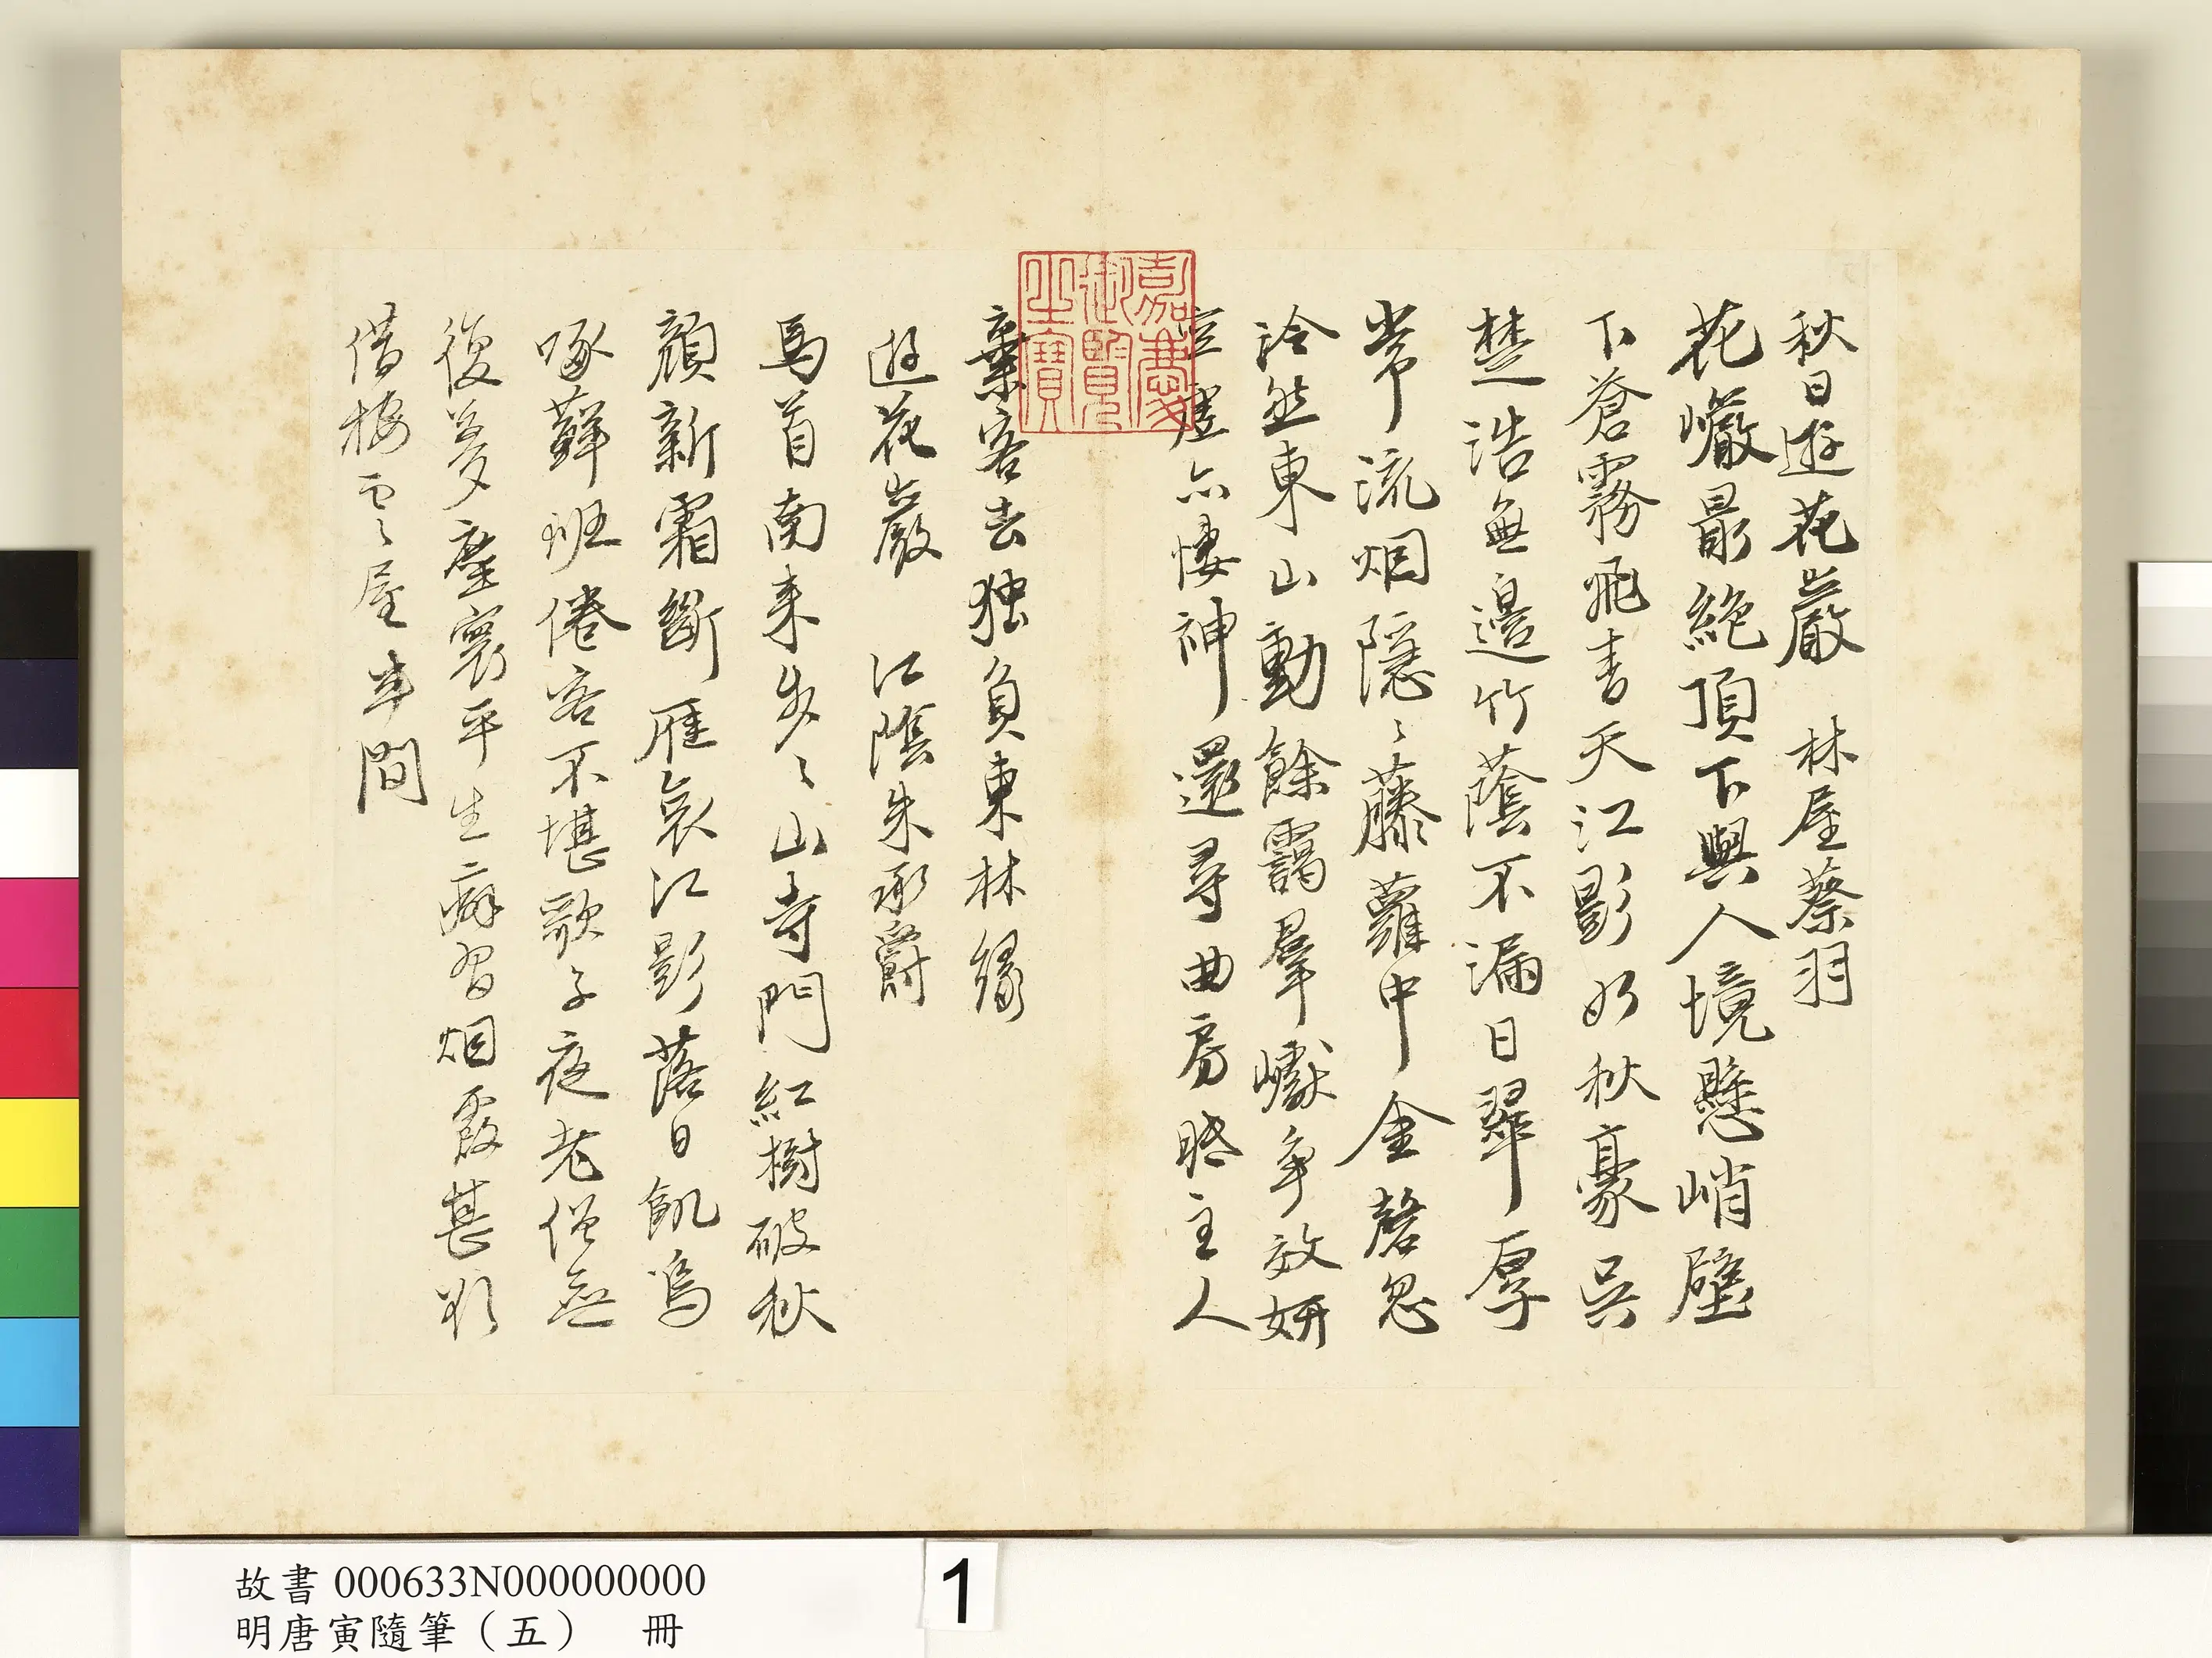 秋日遊花巖 林屋蔡羽
花巖最絶頂下與人境懸峭壁
下蒼霧飛書天江影如秋豪呉
楚浩無邊竹蔭不漏日翠厚
常流烟隠〻藤蘿中金磬忽
泠然東山動餘靄羣巘爭效妍
亦悽神還尋曲房眠主人
棄客去独負東林縁
遊花巖 江陰朱承爵
馬首南来步〻山寺門紅樹破秋
顔新霜斷雁哀江影落日飢烏
啄蘚班倦客不堪歌子夜老僧無
復夢塵寰平生癖習烟霞甚欲
借樓雲〻屋半間
嘉慶御覽之寶
故書 000633N000000000
明唐寅隨筆（五） 冊
1